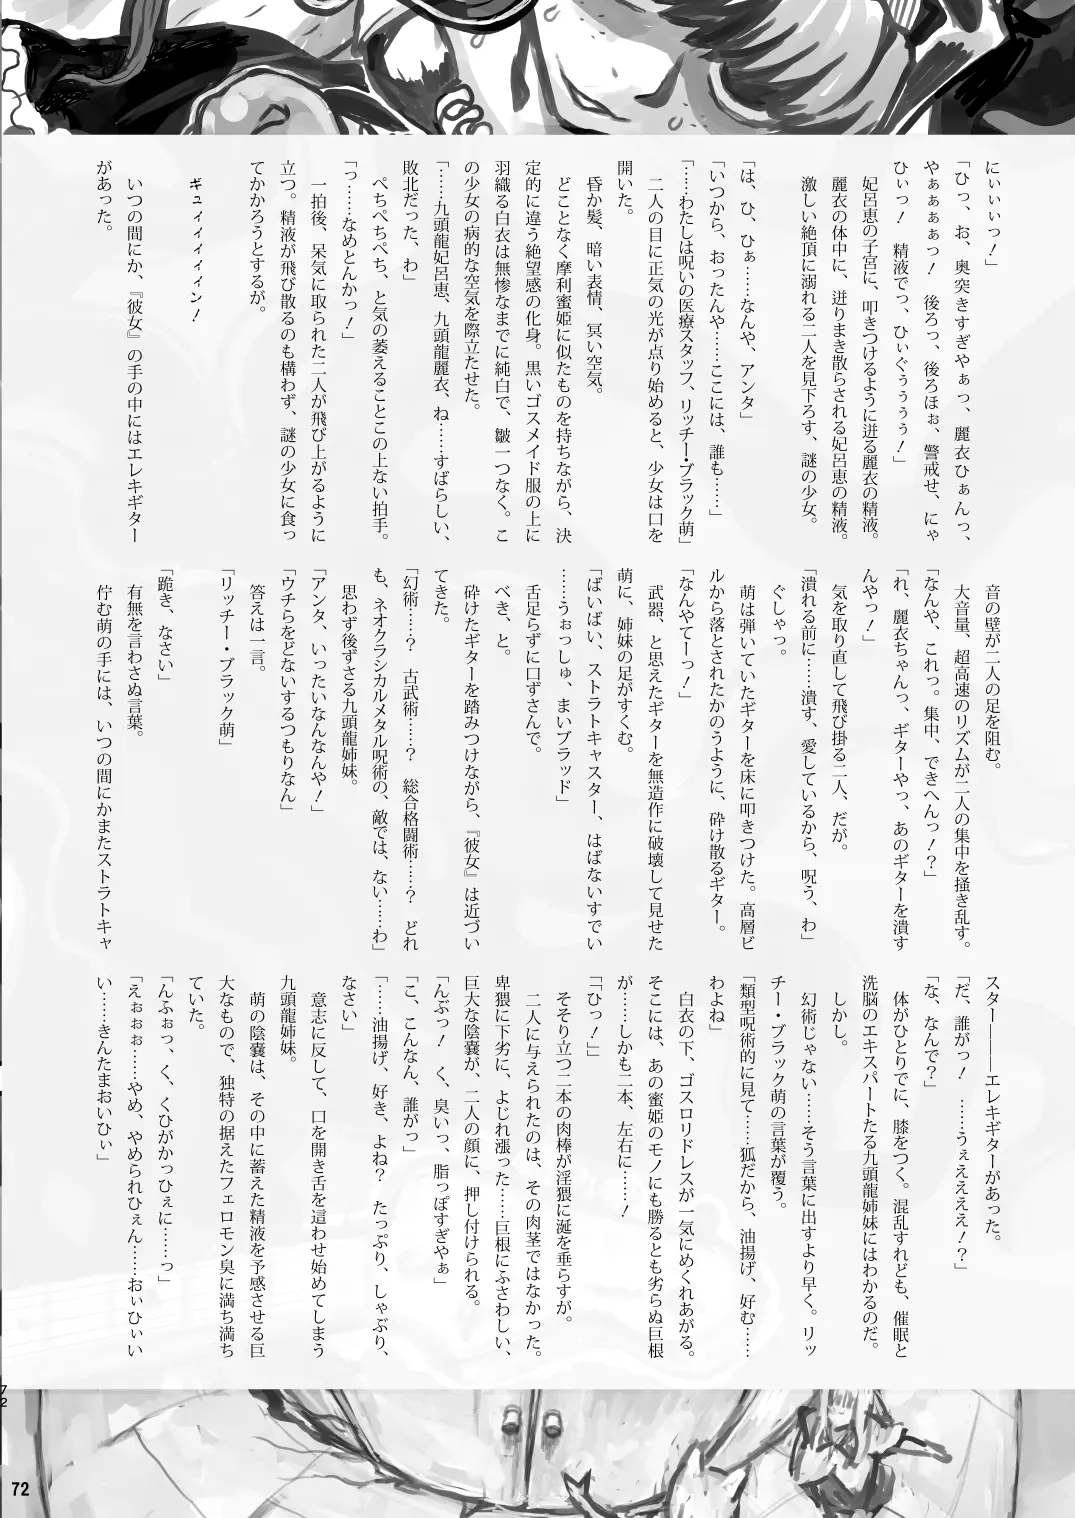 にぃぃぃっ！」
「ひっ、お、奥突きすぎやぁっ、麗衣ひぁんっ、
やぁぁぁぁっ！　後ろっ、後ろほぉ、警戒せ、にゃ
ひぃっ！　精液でっ、ひぃぐぅぅぅぅ！」
妃呂恵の子宮に、叩きつけるように迸る麗衣の精液。
麗衣の体中に、迸りまき散らされる妃呂恵の精液。
激しい絶頂に溺れる二人を見下ろす、謎の少女。
「は、ひ、ひぁ……なんや、アンタ」
「いつから、おったんや……ここには、誰も……」
「……わたしは呪いの医療スタッフ、リッチー・ブラック萌」
二人の目に正気の光が点り始めると、少女は口を
開いた。
昏か髪、暗い表情、冥い空気。
どことなく摩利蜜姫に似たものを持ちながら、決
定的に違う絶望感の化身。黒いゴスメイド服の上に
羽織る白衣は無惨なまでに純白で、皺一つなく。こ
の少女の病的な空気を際立たせた。
「……九頭龍妃呂恵、九頭龍麗衣、ね……すばらしい、
敗北だった、わ」
ぺちぺちぺち、と気の萎えることこの上ない拍手。
「っ……なめとんかっ！」
一拍後、呆気に取られた二人が飛び上がるように
立つ。精液が飛び散るのも構わず、謎の少女に食っ
てかかろうとするが。
ギュィィィィィン！
いつの間にか、『彼女』の手の中にはエレキギター
があった。
音の壁が二人の足を阻む。
大音量、超高速のリズムが二人の集中を掻き乱す。
「なんや、これっ。集中、できへんっ！？」
「れ、麗衣ちゃんっ、ギターやっ、あのギターを潰す
んやっ！」
気を取り直して飛び掛る二人、だが。
「潰れる前に……潰す、愛しているから、呪う、わ」
ぐしゃっ。
萌は弾いていたギターを床に叩きつけた。高層ビ
ルから落とされたかのうように、砕け散るギター。
「なんやてーっ！」
武器、と思えたギターを無造作に破壊して見せた
萌に、姉妹の足がすくむ。
「ばいばい、ストラトキャスター、はばないすでい
……うぉっしゅ、まいブラッド」
舌足らずに口ずさんで。
べき、と。
砕けたギターを踏みつけながら、『彼女』は近づい
てきた。
「幻術……？　古武術……？　総合格闘術……？　どれ
も、ネオクラシカルメタル呪術の、敵では、ない……わ」
思わず後ずさる九頭龍姉妹。
「アンタ、いったいなんなんや！」
「ウチらをどないするつもりなん」
答えは一言。
「リッチー・ブラック萌」
「跪き、なさい」
有無を言わさぬ言葉。
佇む萌の手には、いつの間にかまたストラトキャ
スター――――エレキギターがあった。
「だ、誰がっ！　……うぇえええ！？」
「な、なんで？」
体がひとりでに、膝をつく。混乱すれども、催眠と
洗脳のエキスパートたる九頭龍姉妹にはわかるのだ。
しかし。
幻術じゃない……そう言葉に出すより早く。リッ
チー・ブラック萌の言葉が覆う。
「類型呪術的に見て……狐だから、油揚げ、好む……
わよね」
白衣の下、ゴスロリドレスが一気にめくれあがる。
そこには、あの蜜姫のモノにも勝るとも劣らぬ巨根
が……しかも二本、左右に……！
「ひっ！」」
そそり立つ二本の肉棒が淫猥に涎を垂らすが。
二人に与えられたのは、その肉茎ではなかった。
卑猥に下劣に、よじれ漲った……巨根にふさわしい、
巨大な陰嚢が、二人の顔に、押し付けられる。
「んぶっ！　く、臭いっ、脂っぽすぎやぁ」
「こ、こんなん、誰がっ」
「……油揚げ、好き、よね？　たっぷり、しゃぶり、
なさい」
意志に反して、口を開き舌を這わせ始めてしまう
九頭龍姉妹。
萌の陰嚢は、その中に蓄えた精液を予感させる巨
大なもので、独特の据えたフェロモン臭に満ち満ち
ていた。
「んふぉっ、く、くひがかっひぇに……っ」
「えぉぉぉ……やめ、やめられひぇん……おぃひぃい
い……きんたまおいひぃ」
72
72